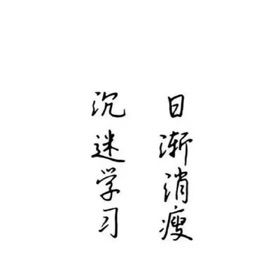 沉迷学习
日渐消瘦